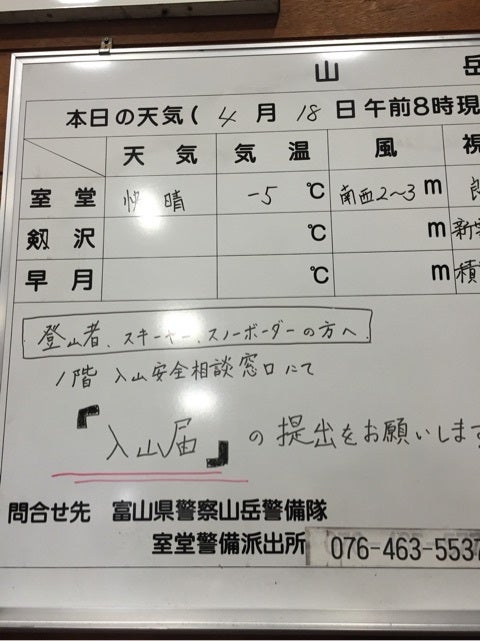 山 岳
本日の天気( 4 月 18 日午前8時現
天 気 気 温 風 視
室 堂 快 晴 -5 ℃ 南西2〜3 m
剱 沢 ℃ m 新
早 月 ℃ m 積
登山者、スキーヤー、スノーボーダーの方へ
1階 入山安全相談窓口にて
『入山届』の提出をお願いします
問合せ先 富山県警察山岳警備隊
室堂警備派出所 076-463-5537